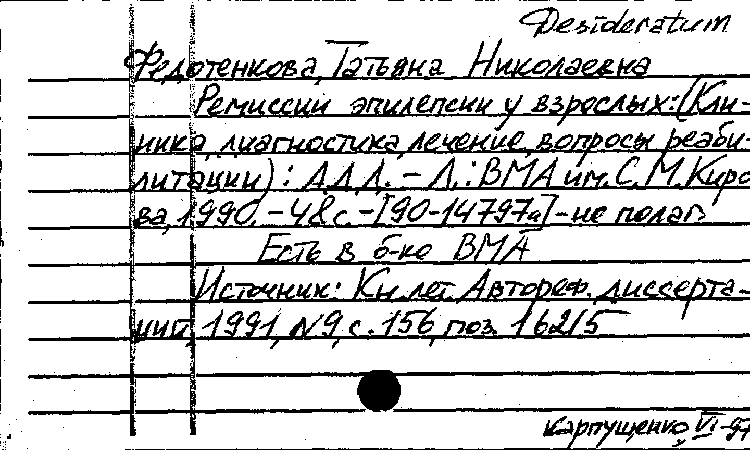 Desideratum
Федотенкова, Татьяна Николаевна
Ремиссии эпилепсии у взрослых: (Кли-
ника, диагностика, лечение, вопросы реаби-
литации): А.Д.Д. – Л.: ВМА им. С.М. Киро
ва, 1990. – 48 с. – [90-14797а] – не полаг.
Есть в б-ке ВМА
Источник: Кн. лет. Автореф. диссерта-
ций, 1991, №9, с. 156, поз. 16215
Карпущенко, VI-97